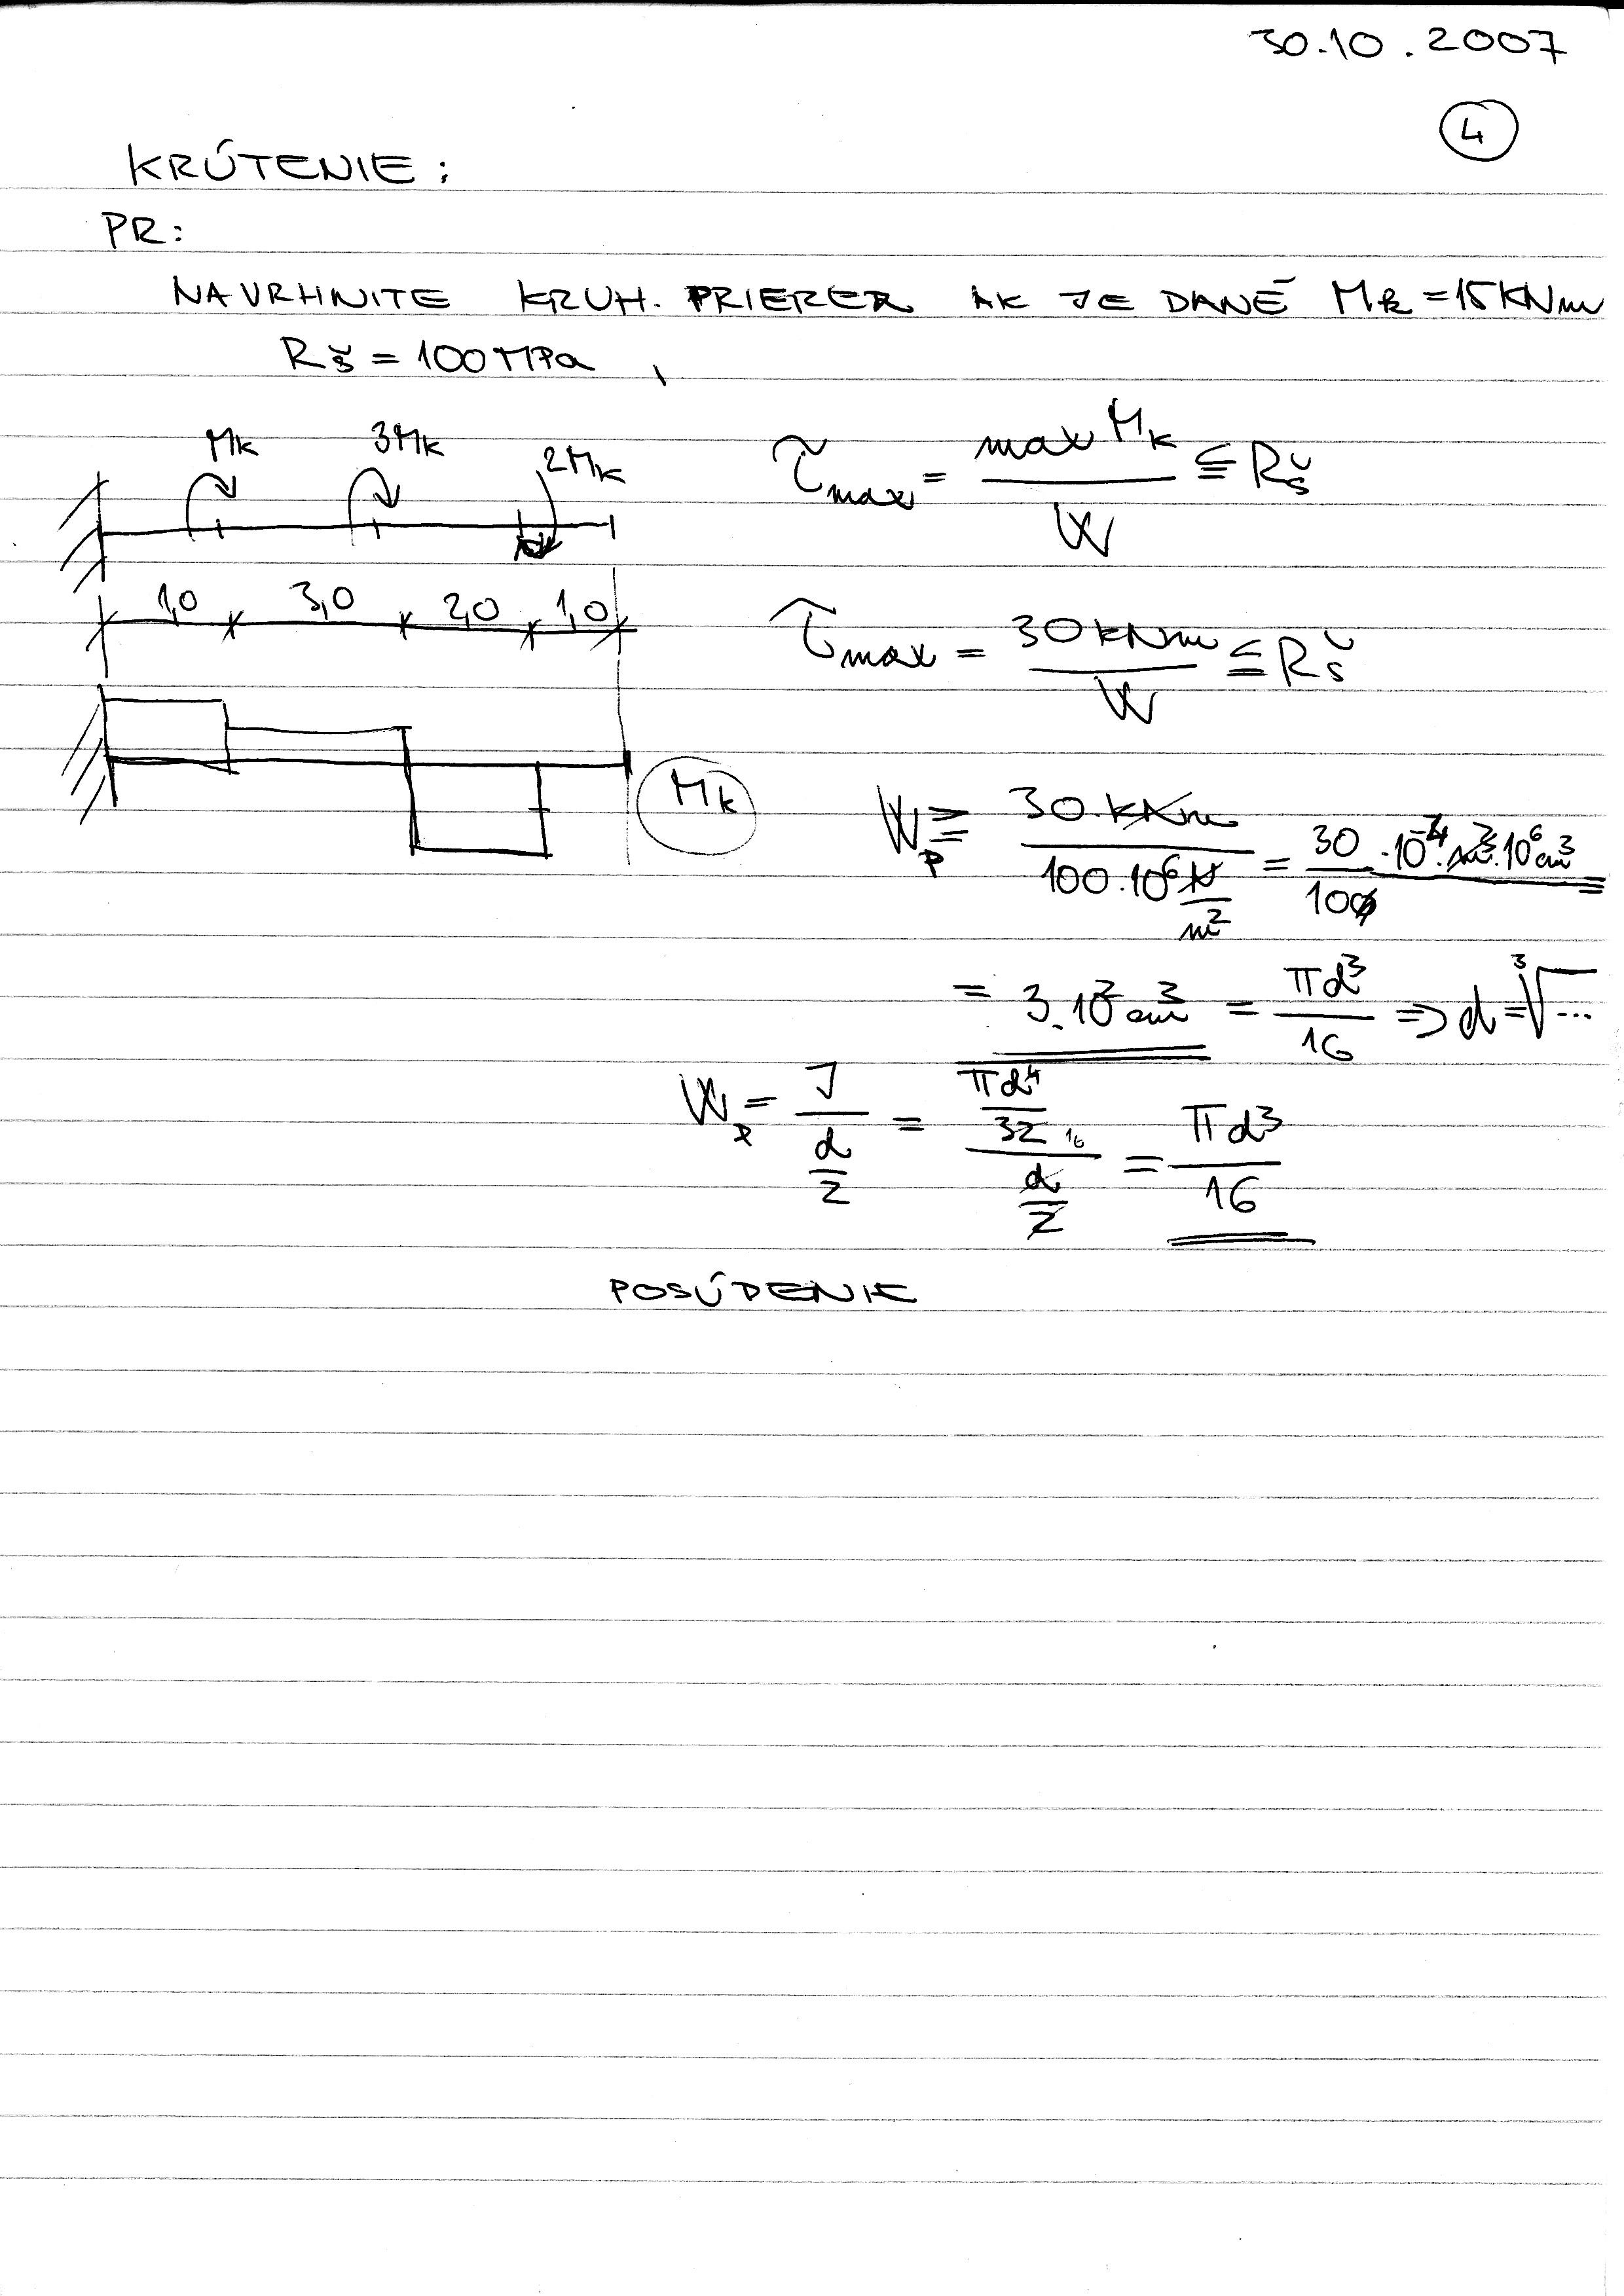 30.10.2007
4
KRÚTENIE:
PR:
NAVRHNITE KRUH. PRIEREZ AK JE DANÉ Mk = 15 KNm
Rš = 100 MPa,
Mk 3Mk 2Mk
τmax = max Mk / W ≤ Rš
1,0 3,0 2,0 1,0
τmax = 30 kNm / W ≤ Rš
Mk
Wp ≥ 30.kNm / 100.10⁶ N/m² = 30 / 100 .10⁻⁴.m³.10⁶cm³
= 3.10² cm³ = πd³ / 16 => d = ³√...
Wp = J / (d/2) = (πd⁴ / 32 16) / (d/2) = πd³ / 16
POSÚDENIE